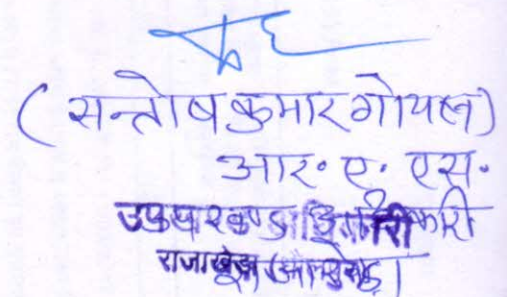 (सन्तोष कुमार गोयल)
आर॰ ए॰ एस॰
उपखण्ड अधिकारी
राजाखेड़ा